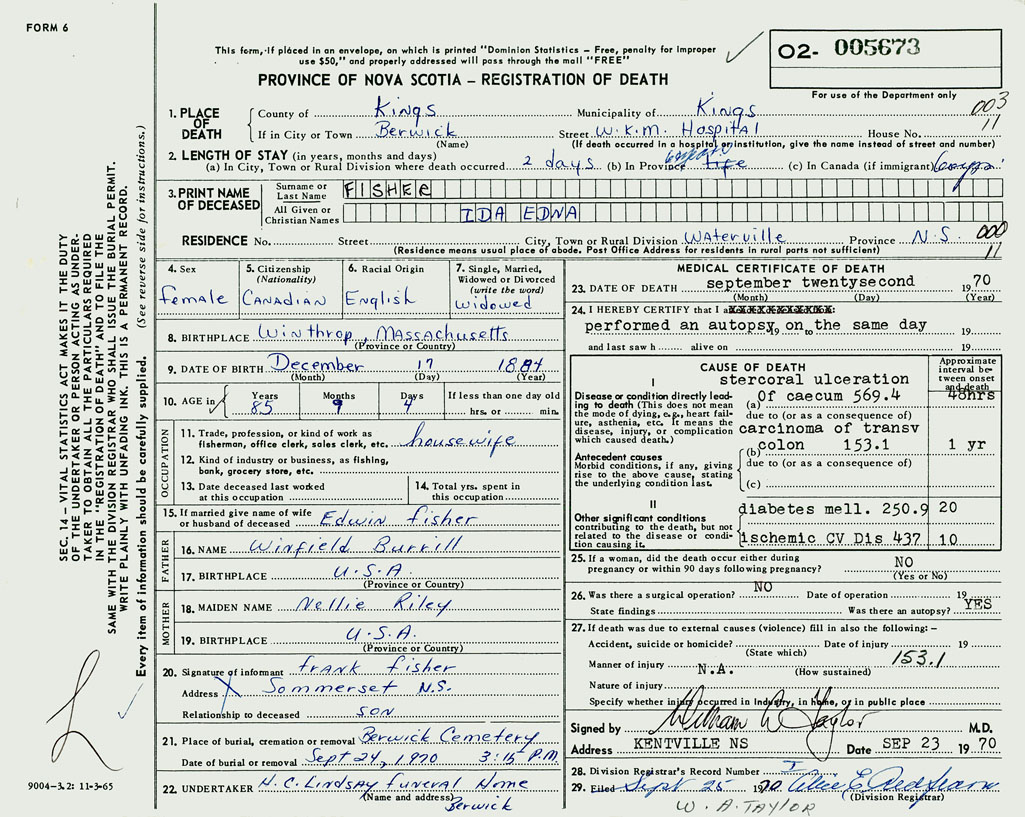 FORM 6
This form, if placed in an envelope, on which is printed "Dominion Statistics – Free, penalty for improper
use $50," and properly addressed will pass through the mail "FREE"
02- 005673
For use of the Department only
PROVINCE OF NOVA SCOTIA – REGISTRATION OF DEATH
003
11
1. PLACE OF DEATH
County of Kings Municipality of Kings
If in City or Town Berwick Street W.K.M. Hospital House No.
(Name) (If death occurred in a hospital or institution, give the name instead of street and number)
2. LENGTH OF STAY (in years, months and days)
(a) In City, Town or Rural Division where death occurred 2 days (b) In Province Life (c) In Canada (if immigrant)
3. PRINT NAME OF DECEASED
Surname or Last Name FISHER
All Given or Christian Names IDA EDNA
RESIDENCE No. Street City, Town or Rural Division Waterville Province N.S.
000
11
(Residence means usual place of abode. Post Office Address for residents in rural parts not sufficient)
4. Sex
female
5. Citizenship
(Nationality)
CANADIAN
6. Racial Origin
English
7. Single, Married,
Widowed or Divorced
(write the word)
widowed
8. BIRTHPLACE Winthrop, Massachusetts
(Province or Country)
9. DATE OF BIRTH December 17 1884
(Month) (Day) (Year)
10. AGE in
Years 85
Months 9
Days 4
If less than one day old
hrs. or min.
OCCUPATION
11. Trade, profession, or kind of work as
fisherman, office clerk, sales clerk, etc. housewife
12. Kind of industry or business, as fishing,
bank, grocery store, etc.
13. Date deceased last worked
at this occupation
14. Total yrs. spent in
this occupation
15. If married give name of wife
or husband of deceased Edwin Fisher
FATHER
16. NAME Winfield Burrill
17. BIRTHPLACE U.S.A.
(Province or Country)
MOTHER
18. MAIDEN NAME Nellie Riley
19. BIRTHPLACE U.S.A.
(Province or Country)
20. Signature of informant Frank Fisher
Address Sommerset N.S.
Relationship to deceased SON
21. Place of burial, cremation or removal Berwick Cemetery
Date of burial or removal Sept 24, 1970 3:15 P.M.
22. UNDERTAKER H.C. Lindsay Funeral Home
(Name and address) Berwick
MEDICAL CERTIFICATE OF DEATH
23. DATE OF DEATH september twentysecond 1970
(Month) (Day) (Year)
24. I HEREBY CERTIFY that I
performed an autopsy on the same day 19
and last saw h alive on 19
CAUSE OF DEATH
Approximate interval between onset and death
I
Disease or condition directly leading to death (This does not mean the mode of dying, e.g., heart failure, asthenia, etc. It means the disease, injury, or complication which caused death.)
stercoral ulceration
(a) Of caecum 569.4 48hrs
due to (or as a consequence of)
carcinoma of transv
(b) colon 153.1 1 yr
Antecedent causes
Morbid conditions, if any, giving rise to the above cause, stating the underlying condition last.
due to (or as a consequence of)
(c)
II
Other significant conditions
contributing to the death, but not related to the disease or condition causing it.
diabetes mell. 250.9 20
ischemic CV Dis 437 10
25. If a woman, did the death occur either during
pregnancy or within 90 days following pregnancy? NO
(Yes or No)
26. Was there a surgical operation? NO Date of operation 19
State findings Was there an autopsy? YES
27. If death was due to external causes (violence) fill in also the following: –
Accident, suicide or homicide? Date of injury 19
(State which)
153.1
Manner of injury N.A.
(How sustained)
Nature of injury
Specify whether injury occurred in Industry, in home, or in public place
Signed by William W Taylor M.D.
Address KENTVILLE NS Date SEP 23 1970
28. Division Registrar's Record Number
29. Filed Sept 25 1970
(Division Registrar)
W. A. TAYLOR
SEC. 14 – VITAL STATISTICS ACT MAKES IT THE DUTY
OF THE UNDERTAKER OR PERSON ACTING AS UNDER-
TAKER TO OBTAIN ALL THE PARTICULARS REQUIRED
IN THE "REGISTRATION OF DEATH" AND TO FILE THE
SAME WITH THE DIVISION REGISTRAR WHO SHALL ISSUE THE BURIAL PERMIT.
WRITE PLAINLY WITH UNFADING INK. THIS IS A PERMANENT RECORD.
Every item of information should be carefully supplied. (See reverse side for instructions.)
9004-3.2: 11-3-65